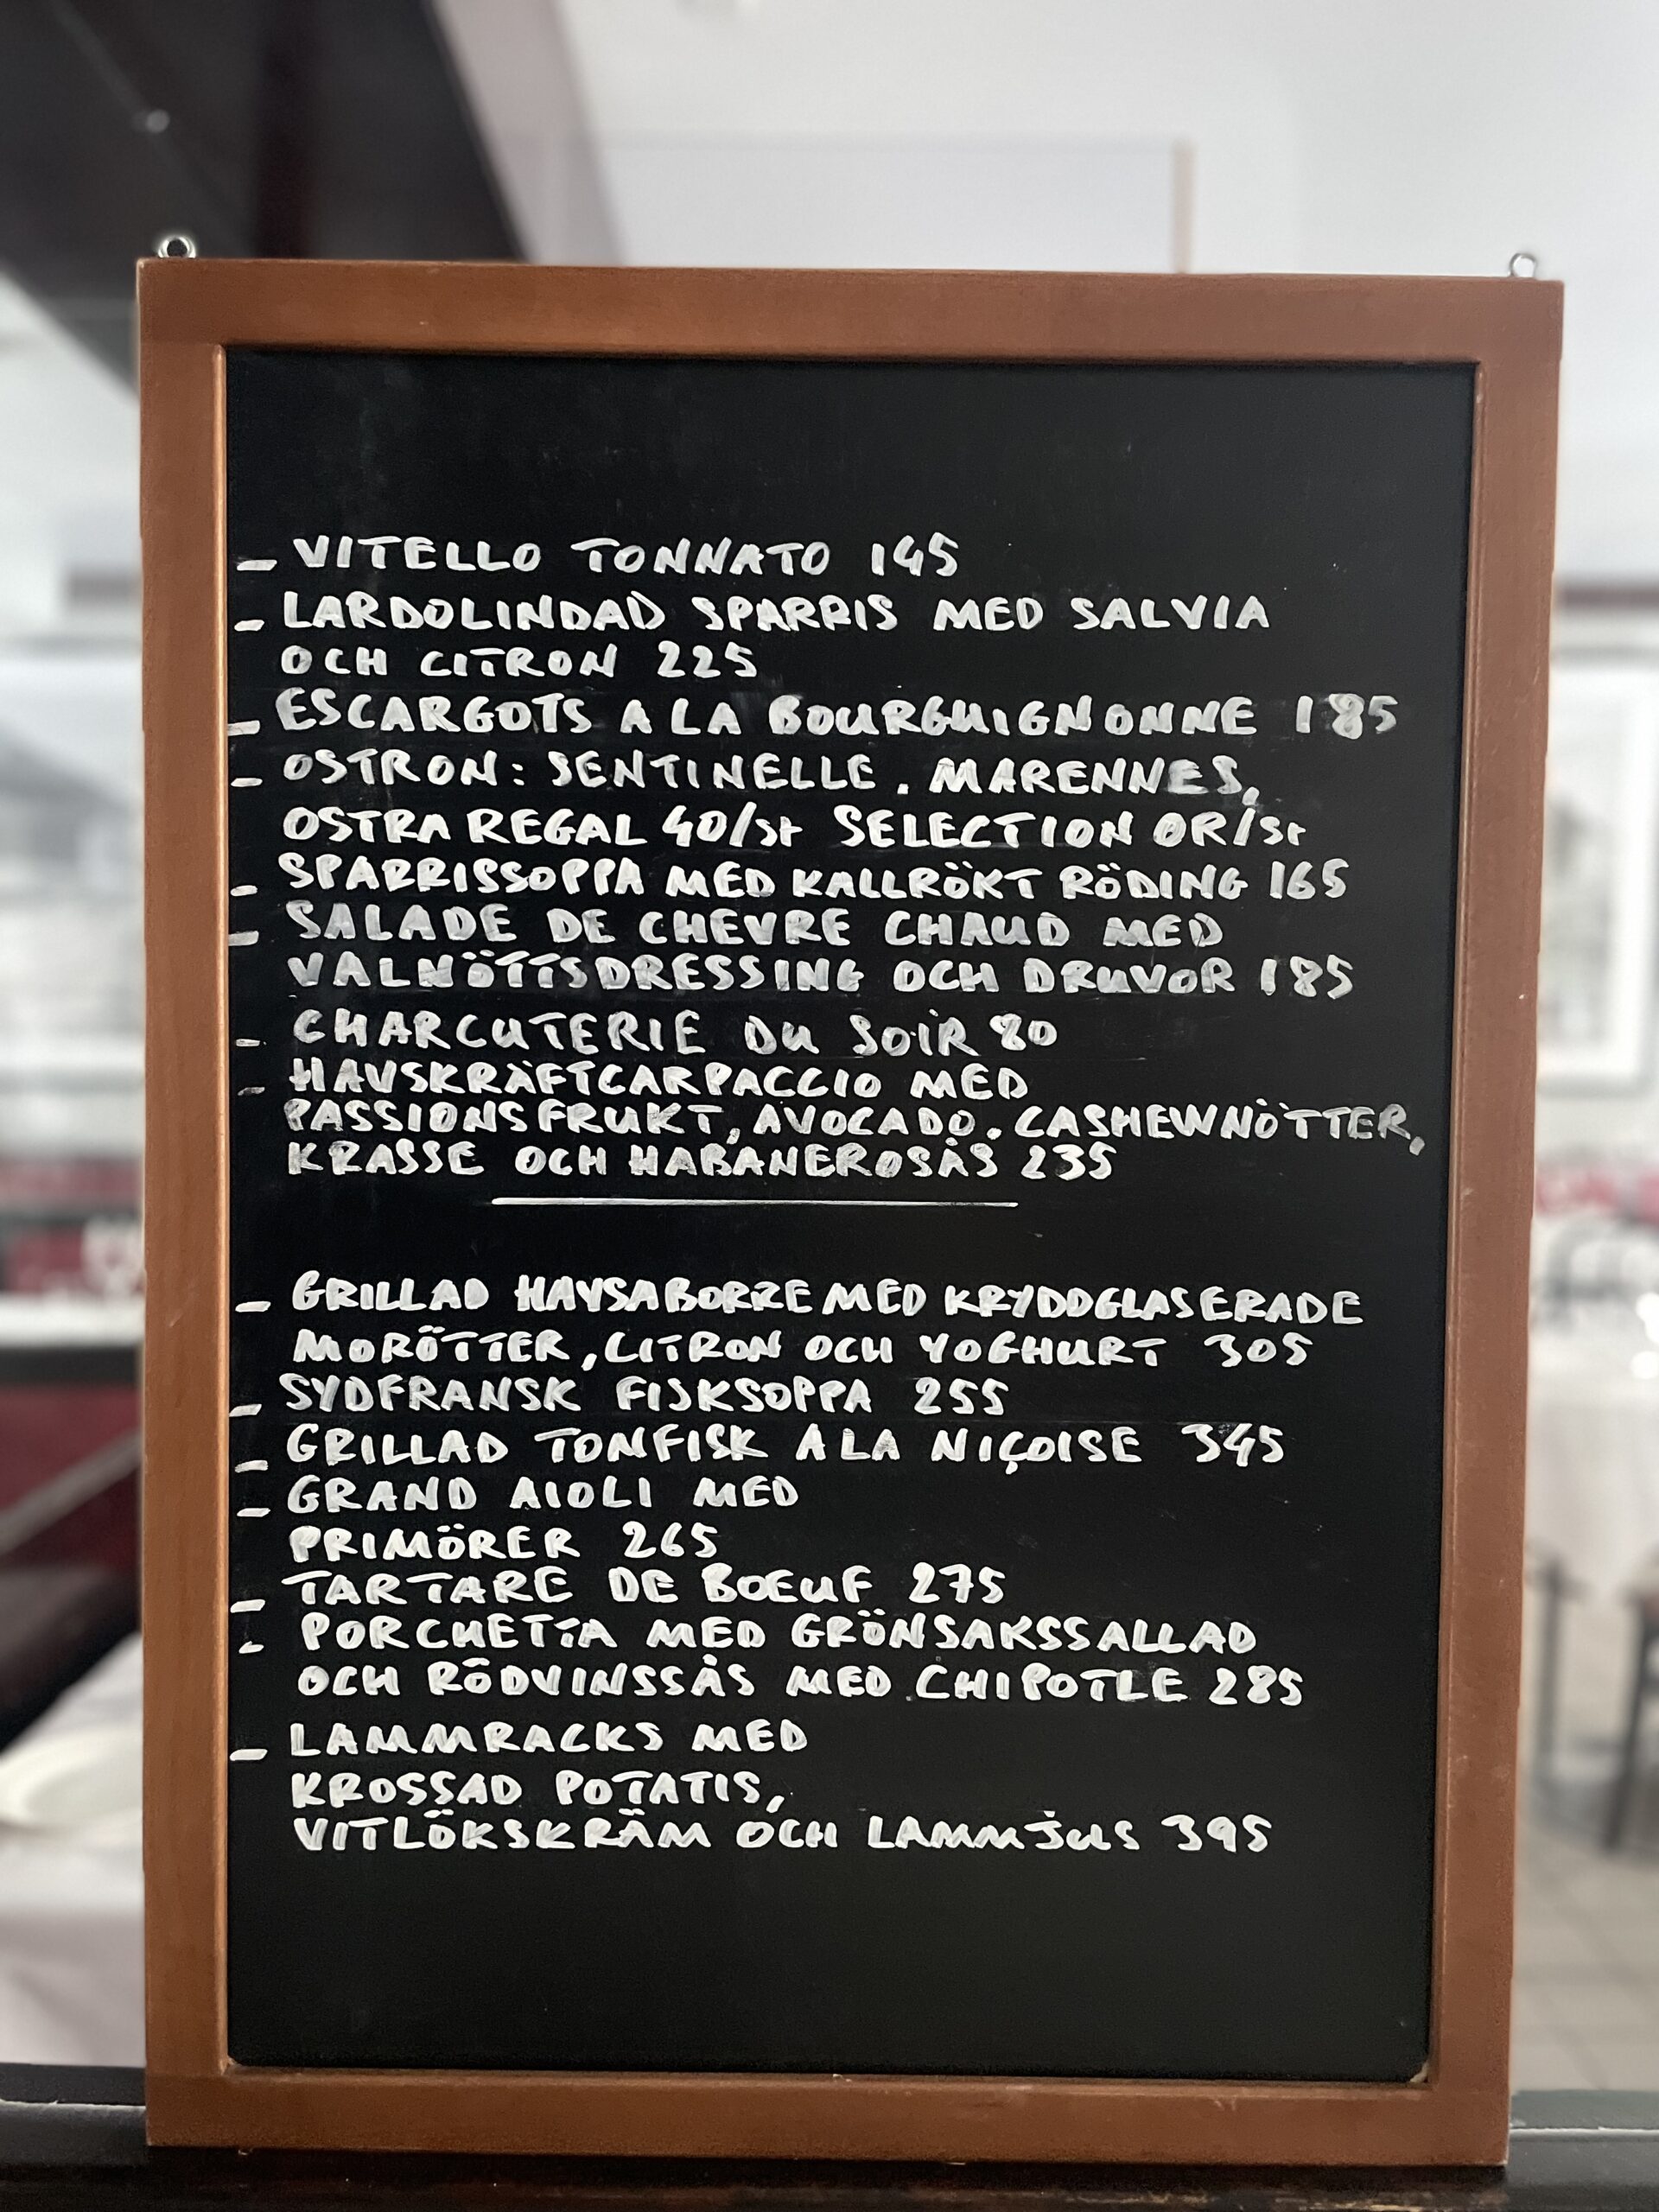 - VITELLO TONNATO 145
- LARDOLINDAD SPARRIS MED SALVIA
OCH CITRON 225
- ESCARGOTS A LA BOURGUIGNONNE 185
- OSTRON: SENTINELLE, MARENNES,
OSTRA REGAL 40/St SELECTION OR/St
- SPARRISSOPPA MED KALLRÖKT RÖDING 165
- SALADE DE CHEVRE CHAUD MED
VALNÖTTSDRESSING OCH DRUVOR 185
- CHARCUTERIE DU SOIR 80
- HAVSKRÄFTCARPACCIO MED
PASSIONSFRUKT, AVOCADO, CASHEWNÖTTER,
KRASSE OCH HABANEROSÅS 235
- GRILLAD HAVSABORRE MED KRYDDGLASERADE
MORÖTTER, CITRON OCH YOGHURT 305
- SYDFRANSK FISKSOPPA 255
- GRILLAD TONFISK A LA NIÇOISE 345
- GRAND AIOLI MED
PRIMÖRER 265
- TARTARE DE BOEUF 275
- PORCHETTA MED GRÖNSAKSSALLAD
OCH RÖDVINSSÅS MED CHIPOTLE 285
- LAMMRACKS MED
KROSSAD POTATIS,
VITLÖKSKRÄM OCH LAMMJUS 395